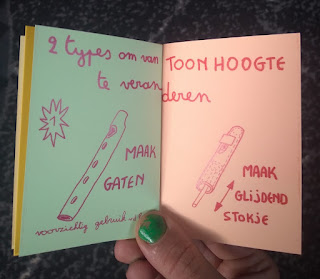 2 types om van TOON HOOGTE
te veranderen
1
MAAK
GATEN
voorzichtig gebruik
MAAK
GLIJDEND
STOKJE